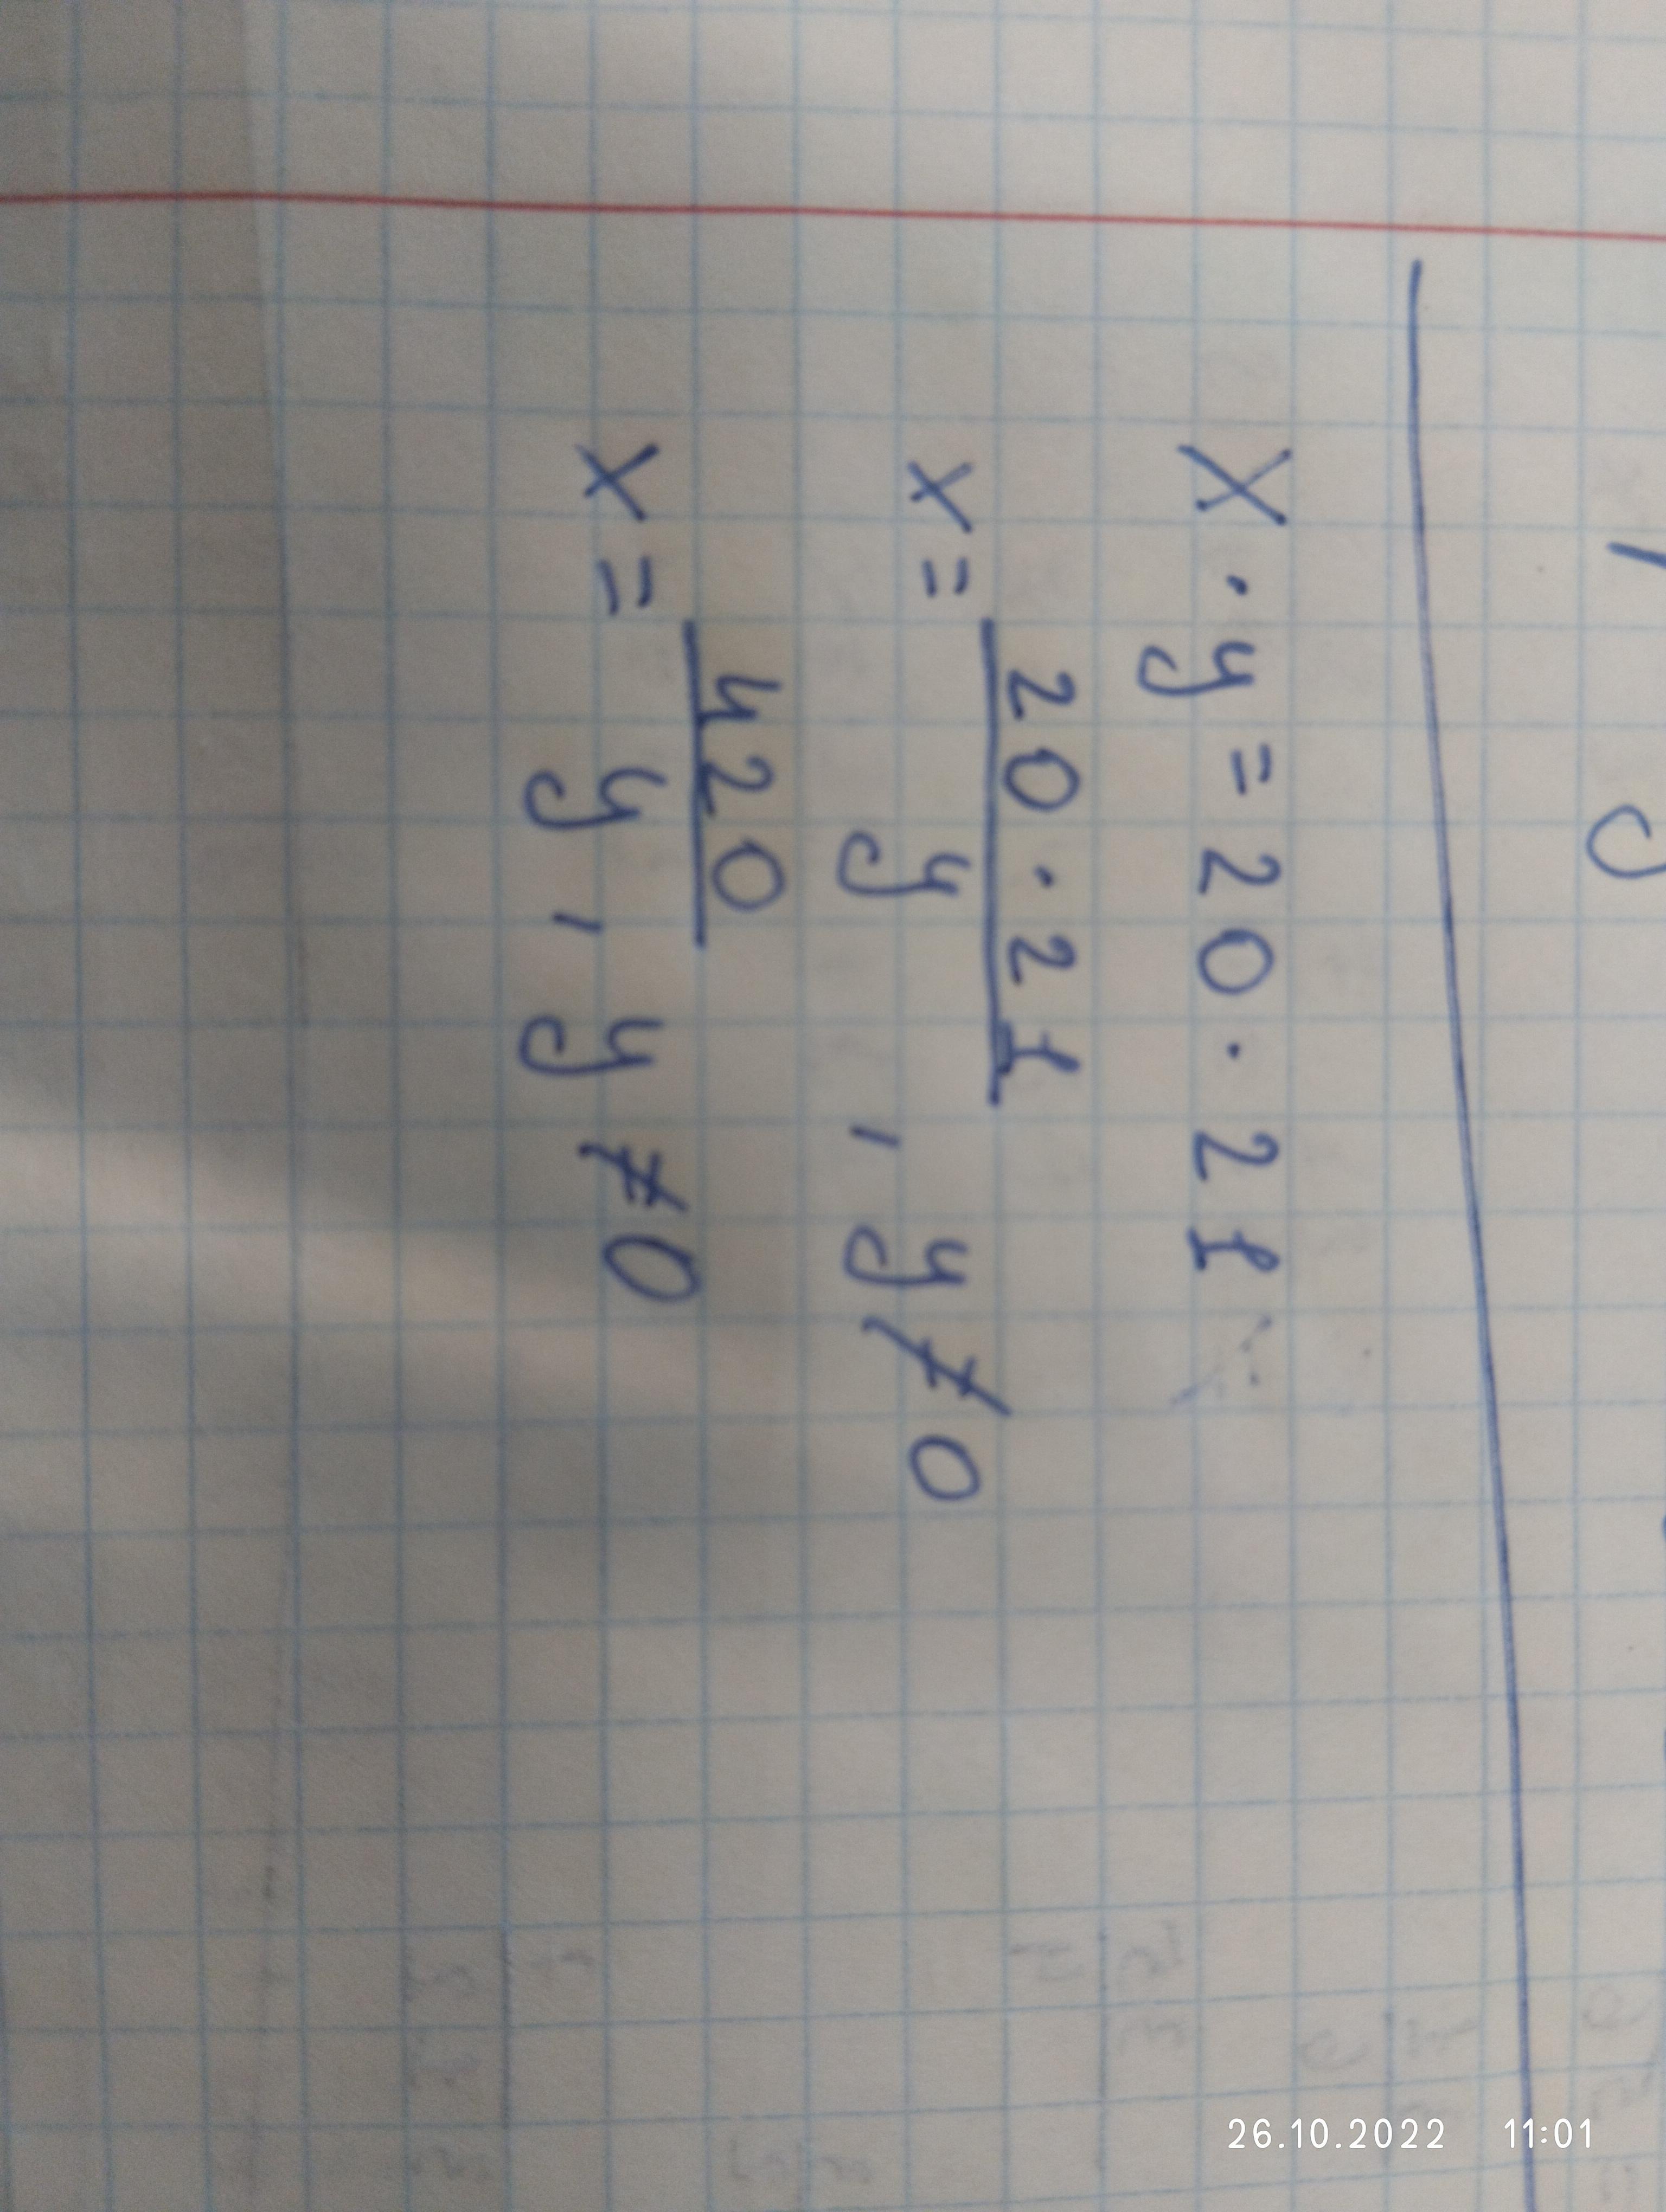 x · y = 20 · 21
x = 20 · 21 / y , y ≠ 0
x = 420 / y , y ≠ 0
26.10.2022 11:01